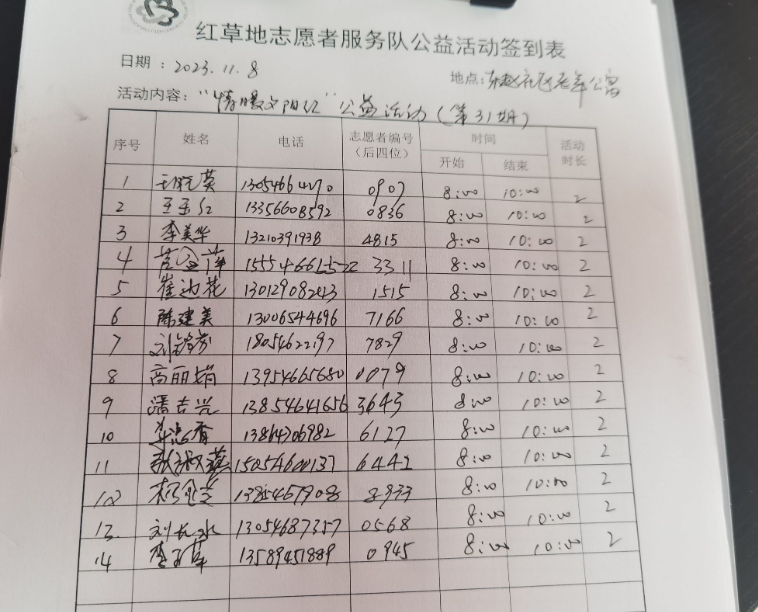 红草地志愿者服务队公益活动签到表
日期：2023.11.8
地点:东赵社区老年公寓
活动内容："情暖夕阳红"公益活动(第31期)
序号 姓名 电话 志愿者编号（后四位） 时间 开始 结束 活动时长
1 0907 8:00 10:00 2
2 王玉红 13356608592 0836 8:00 10:00 2
3 李美华 13210391938 4815 8:00 10:00 2
4 3311 8:00 10:00 2
5 1515 8:00 10:00 2
6 陈建美 13006544696 7166 8:00 10:00 2
7 18054622197 7829 8:00 10:00 2
8 高丽娟 13954665680 0079 8:00 10:00 2
9 潘吉兴 13854641656 3643 8:00 10:00 2
10 13864706982 6127 8:00 10:00 2
11 15054600137 6442 8:00 10:00 2
12 8:00 10:00 2
13. 刘长水 13054687357 0568 8:00 10:00 2
14 13589451889 0945 8:00 10:00 2